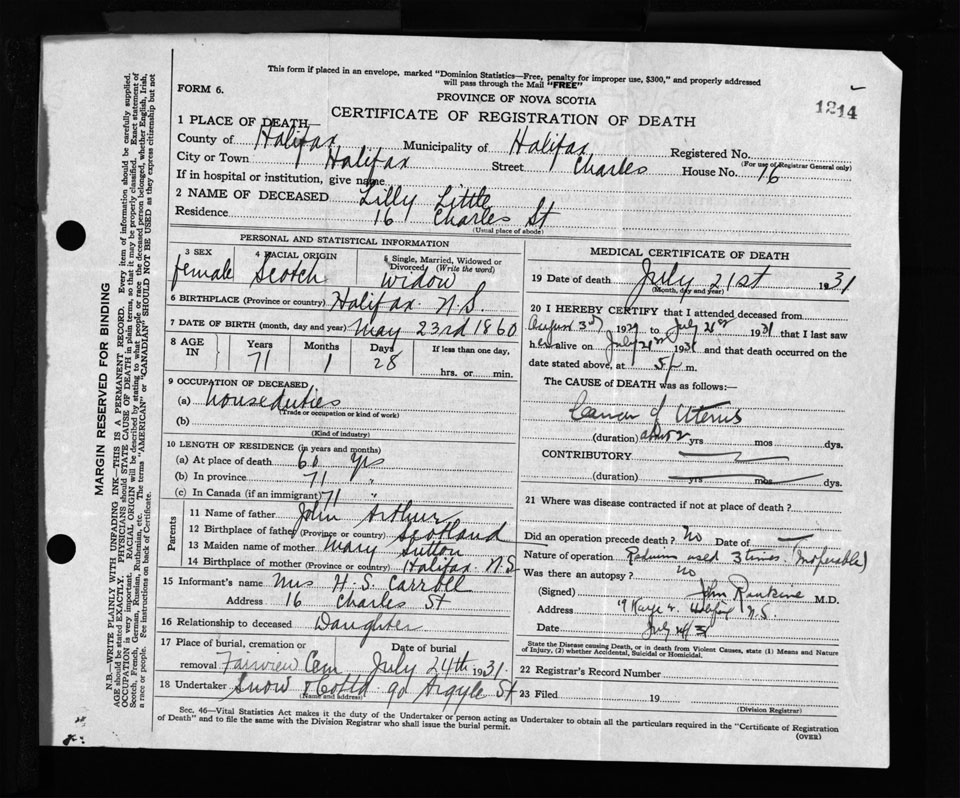 This form if placed in an envelope, marked "Dominion Statistics—Free, penalty for improper use, $300," and properly addressed
will pass through the Mail "FREE"
FORM 6.
PROVINCE OF NOVA SCOTIA
1214
CERTIFICATE OF REGISTRATION OF DEATH
1 PLACE OF DEATH—
County of Halifax Municipality of Halifax Registered No.
(For use of Registrar General only)
City or Town Halifax Street Charles House No. 16
If in hospital or institution, give name
2 NAME OF DECEASED Lilly Little
Residence 16 Charles St
(Usual place of abode)
PERSONAL AND STATISTICAL INFORMATION
3 SEX 4 RACIAL ORIGIN 5 Single, Married, Widowed or
Divorced (Write the word)
female Scotch Widow
6 BIRTHPLACE (Province or country) Halifax N.S.
7 DATE OF BIRTH (month, day and year) May 23rd 1860
8 AGE IN Years Months Days If less than one day,
71 1 28 hrs. or min.
9 OCCUPATION OF DECEASED
(a) houseduties
(Trade or occupation or kind of work)
(b)
(Kind of industry)
10 LENGTH OF RESIDENCE (in years and months)
(a) At place of death 60 yrs
(b) In province 71 "
(c) In Canada (if an immigrant) 71 "
Parents
11 Name of father John Arthur
12 Birthplace of father (Province or country) Scotland
13 Maiden name of mother Mary Sutton
14 Birthplace of mother (Province or country) Halifax N.S
15 Informant's name Mrs H. S. Carroll
Address 16 Charles St
16 Relationship to deceased Daughter
17 Place of burial, cremation or Date of burial
removal Fairview Cem July 24th 1931.
18 Undertaker Snow & Co Ltd 90 Argyle St
(Name and address)
MEDICAL CERTIFICATE OF DEATH
19 Date of death July 21st 1931
(Month, day and year)
20 I HEREBY CERTIFY that I attended deceased from
August 3rd 1929 to July 21st 1931 that I last saw
her alive on July 21st 1931 and that death occurred on the
date stated above, at 5 p m.
The CAUSE of DEATH was as follows:—
Cancer of Uterus
(duration) about 2 yrs mos dys.
CONTRIBUTORY
(duration) yrs mos dys.
21 Where was disease contracted if not at place of death?
Did an operation precede death? No Date of —
Nature of operation Radium used 3 times (Inoperable)
Was there an autopsy? no
(Signed) John Rankine M.D.
Address Halifax N.S.
Date July
State the Disease causing Death, or in death from Violent Causes, state (1) Means and Nature
of Injury, (2) whether Accidental, Suicidal or Homicidal.
22 Registrar's Record Number
23 Filed 19
(Division Registrar)
Sec. 46—Vital Statistics Act makes it the duty of the Undertaker or person acting as Undertaker to obtain all the particulars required in the "Certificate of Registration
of Death" and to file the same with the Division Registrar who shall issue the burial permit.
(OVER)
MARGIN RESERVED FOR BINDING
N.B.—WRITE PLAINLY WITH UNFADING INK—THIS IS A PERMANENT RECORD. Every item of information should be carefully supplied.
AGE should be stated EXACTLY. PHYSICIANS should STATE CAUSE OF DEATH in plain terms, so that it may be properly classified. Exact statement of
OCCUPATION is very important. RACIAL ORIGIN will be described by stating to what people or race the deceased person belonged, whether English, Irish,
Scotch, French, German, Russian, Ruthenian, etc. The terms "AMERICAN" or "CANADIAN" SHOULD NOT BE USED as they express citizenship but not
a race or people. See instructions on back of Certificate.